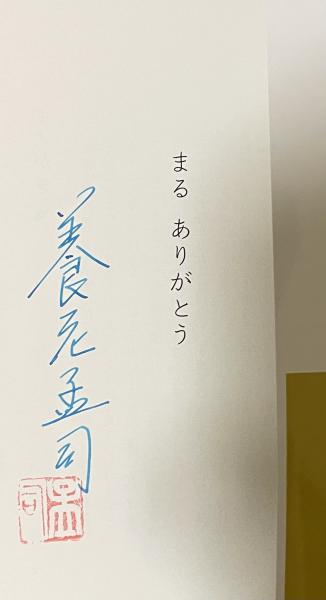 まる ありがとう
養老孟司
孟司